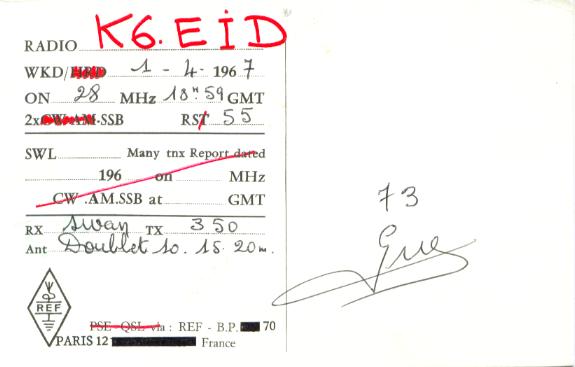 RADIO K6.EID
WKD/HRD 1-4-1967
ON 28 MHz 18H59 GMT
2x CW-AM-SSB RST 55
SWL Many tnx Report dated
196 on MHz
CW .AM.SSB at GMT
RX Swan TX 350
Ant Doublet 10. 15. 20m.
REF
PSE-QSL via : REF - B.P. 70
PARIS 12 France
73